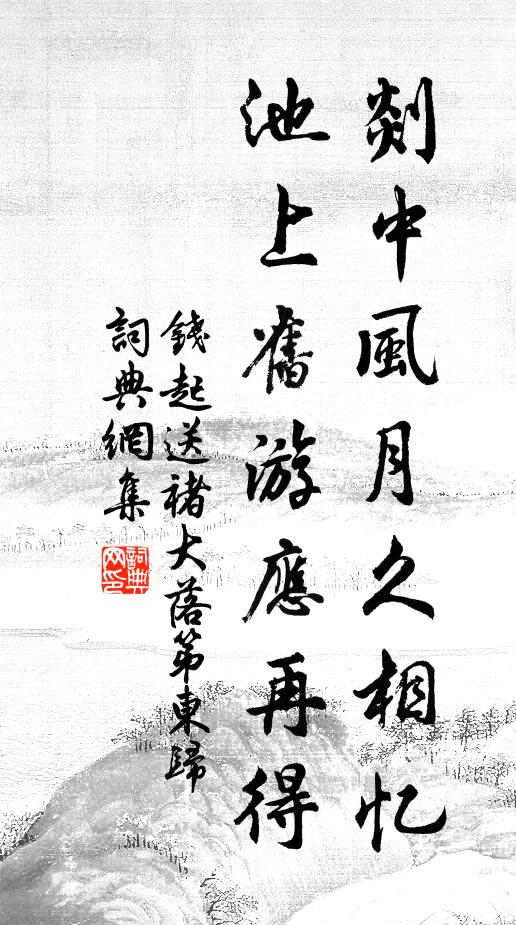 剡中風月久相忆
池上舊游應再得
錢起送褚大落第東歸
詞典網集
詞典网印